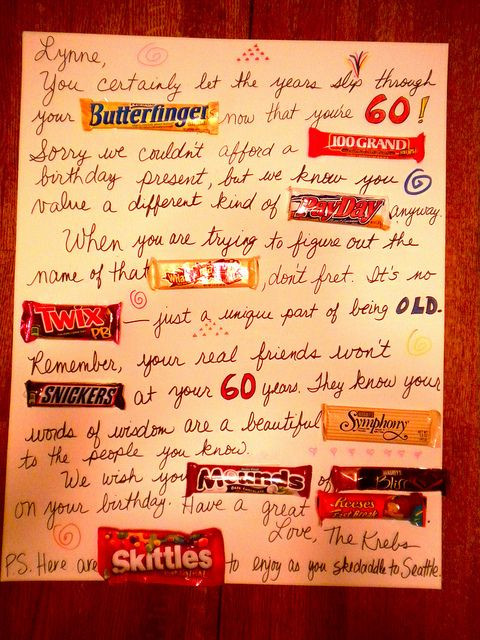 Lynne,
You certainly let the years slip through
your Butterfinger now that you're 60!
Sorry we couldn't afford a 100 GRAND
birthday present, but we know you
value a different kind of PayDay anyway.
When you are trying to figure out the
name of that , don't fret. It's no
TWIX PB — just a unique part of being OLD.
Remember, your real friends won't
SNICKERS at your 60 years. They know your
words of wisdom are a beautiful Symphony
to the people you know.
We wish you Mounds of Bliss
on your birthday. Have a great Reese's Fast Break
Love, The Krebs
P.S. Here are Skittles to enjoy as you skedaddle to Seattle.